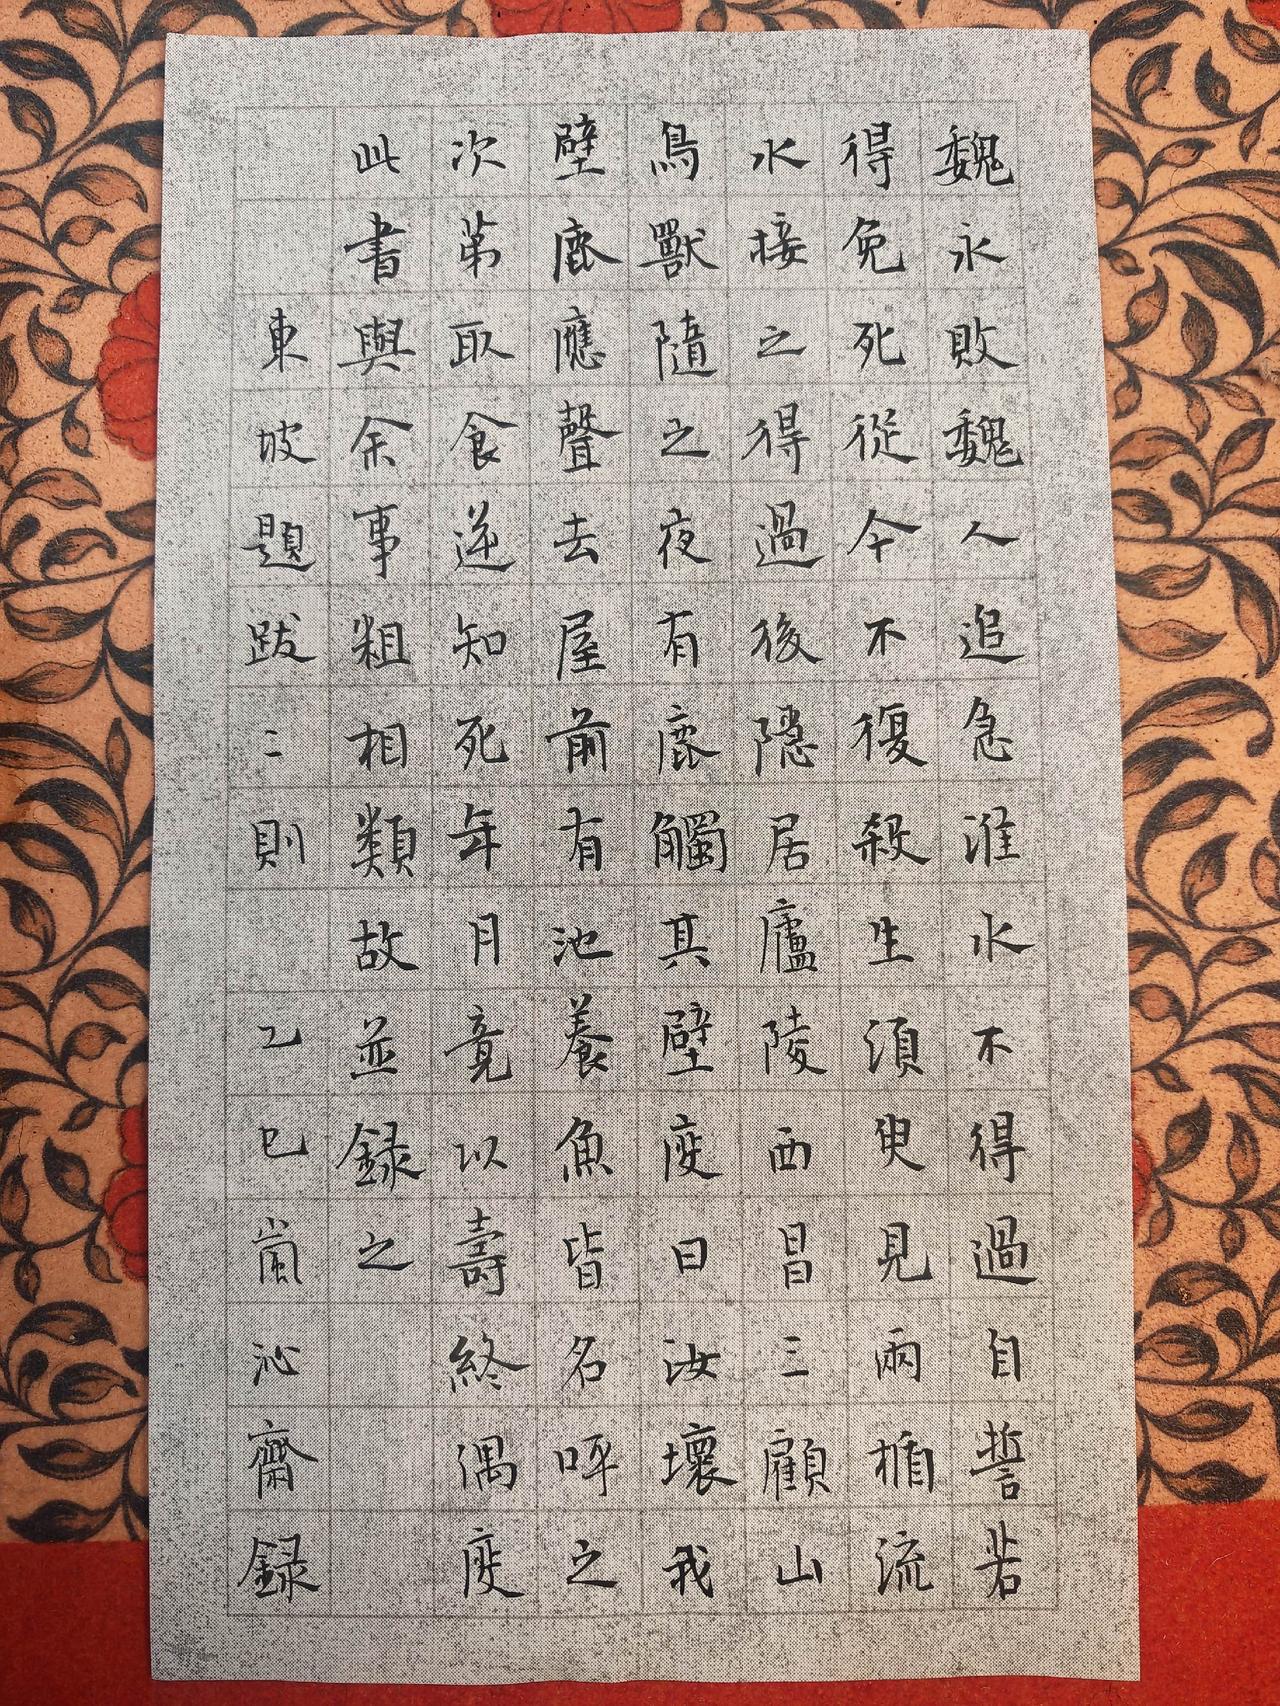 魏永敗魏人追急淮水不得過自誓若
得免死從今不復殺生須臾見兩楯流
水接之得過後隱居廬陵西昌三顧山
鳥獸隨之夜有鹿觸其壁度曰汝壞我
壁鹿應聲去屋前有池養魚皆名呼之
次第取食逆知死年月竟以壽終偶度
此書與余事粗相類故並録之
東坡題跋二則 乙巳嵐沁齋録